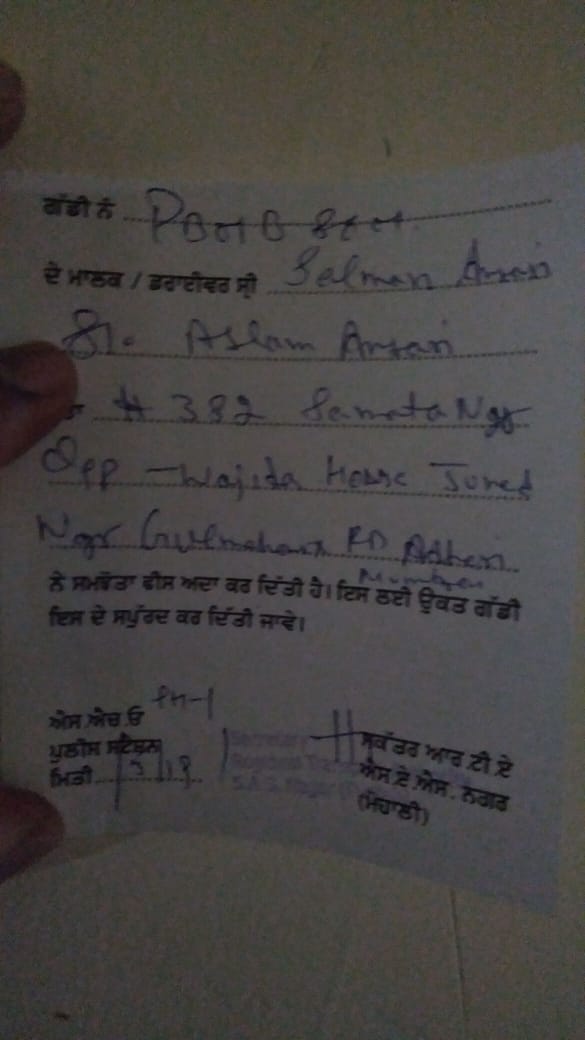 ਗੱਡੀ ਨੰ
ਦੇ ਮਾਲਕ / ਡਰਾਈਵਰ ਸ੍ਰੀ Salman Ansari
S/o Aslam Ansari
# 382 Samata Ngr
Opp - Wajida House Juned
Ngr RD
Mumbai
ਨੇ ਸਮਝੋਤਾ ਫੀਸ ਅਦਾ ਕਰ ਦਿੱਤੀ ਹੈ। ਇਸ ਲਈ ਉਕਤ ਗੱਡੀ
ਇਸ ਦੇ ਸਪੁੱਰਦ ਕਰ ਦਿੱਤੀ ਜਾਵੇ।
ਐਸ.ਐਚ.ਓ PH-1
ਪੁਲੀਸ ਸਟੇਸ਼ਨ
ਮਿਤੀ
Secretary
Regional
S.A.S. Nagar
ਸਕੱਤਰ ਆਰ.ਟੀ.ਏ
ਐਸ.ਏ.ਐਸ. ਨਗਰ
(ਮੋਹਾਲੀ)